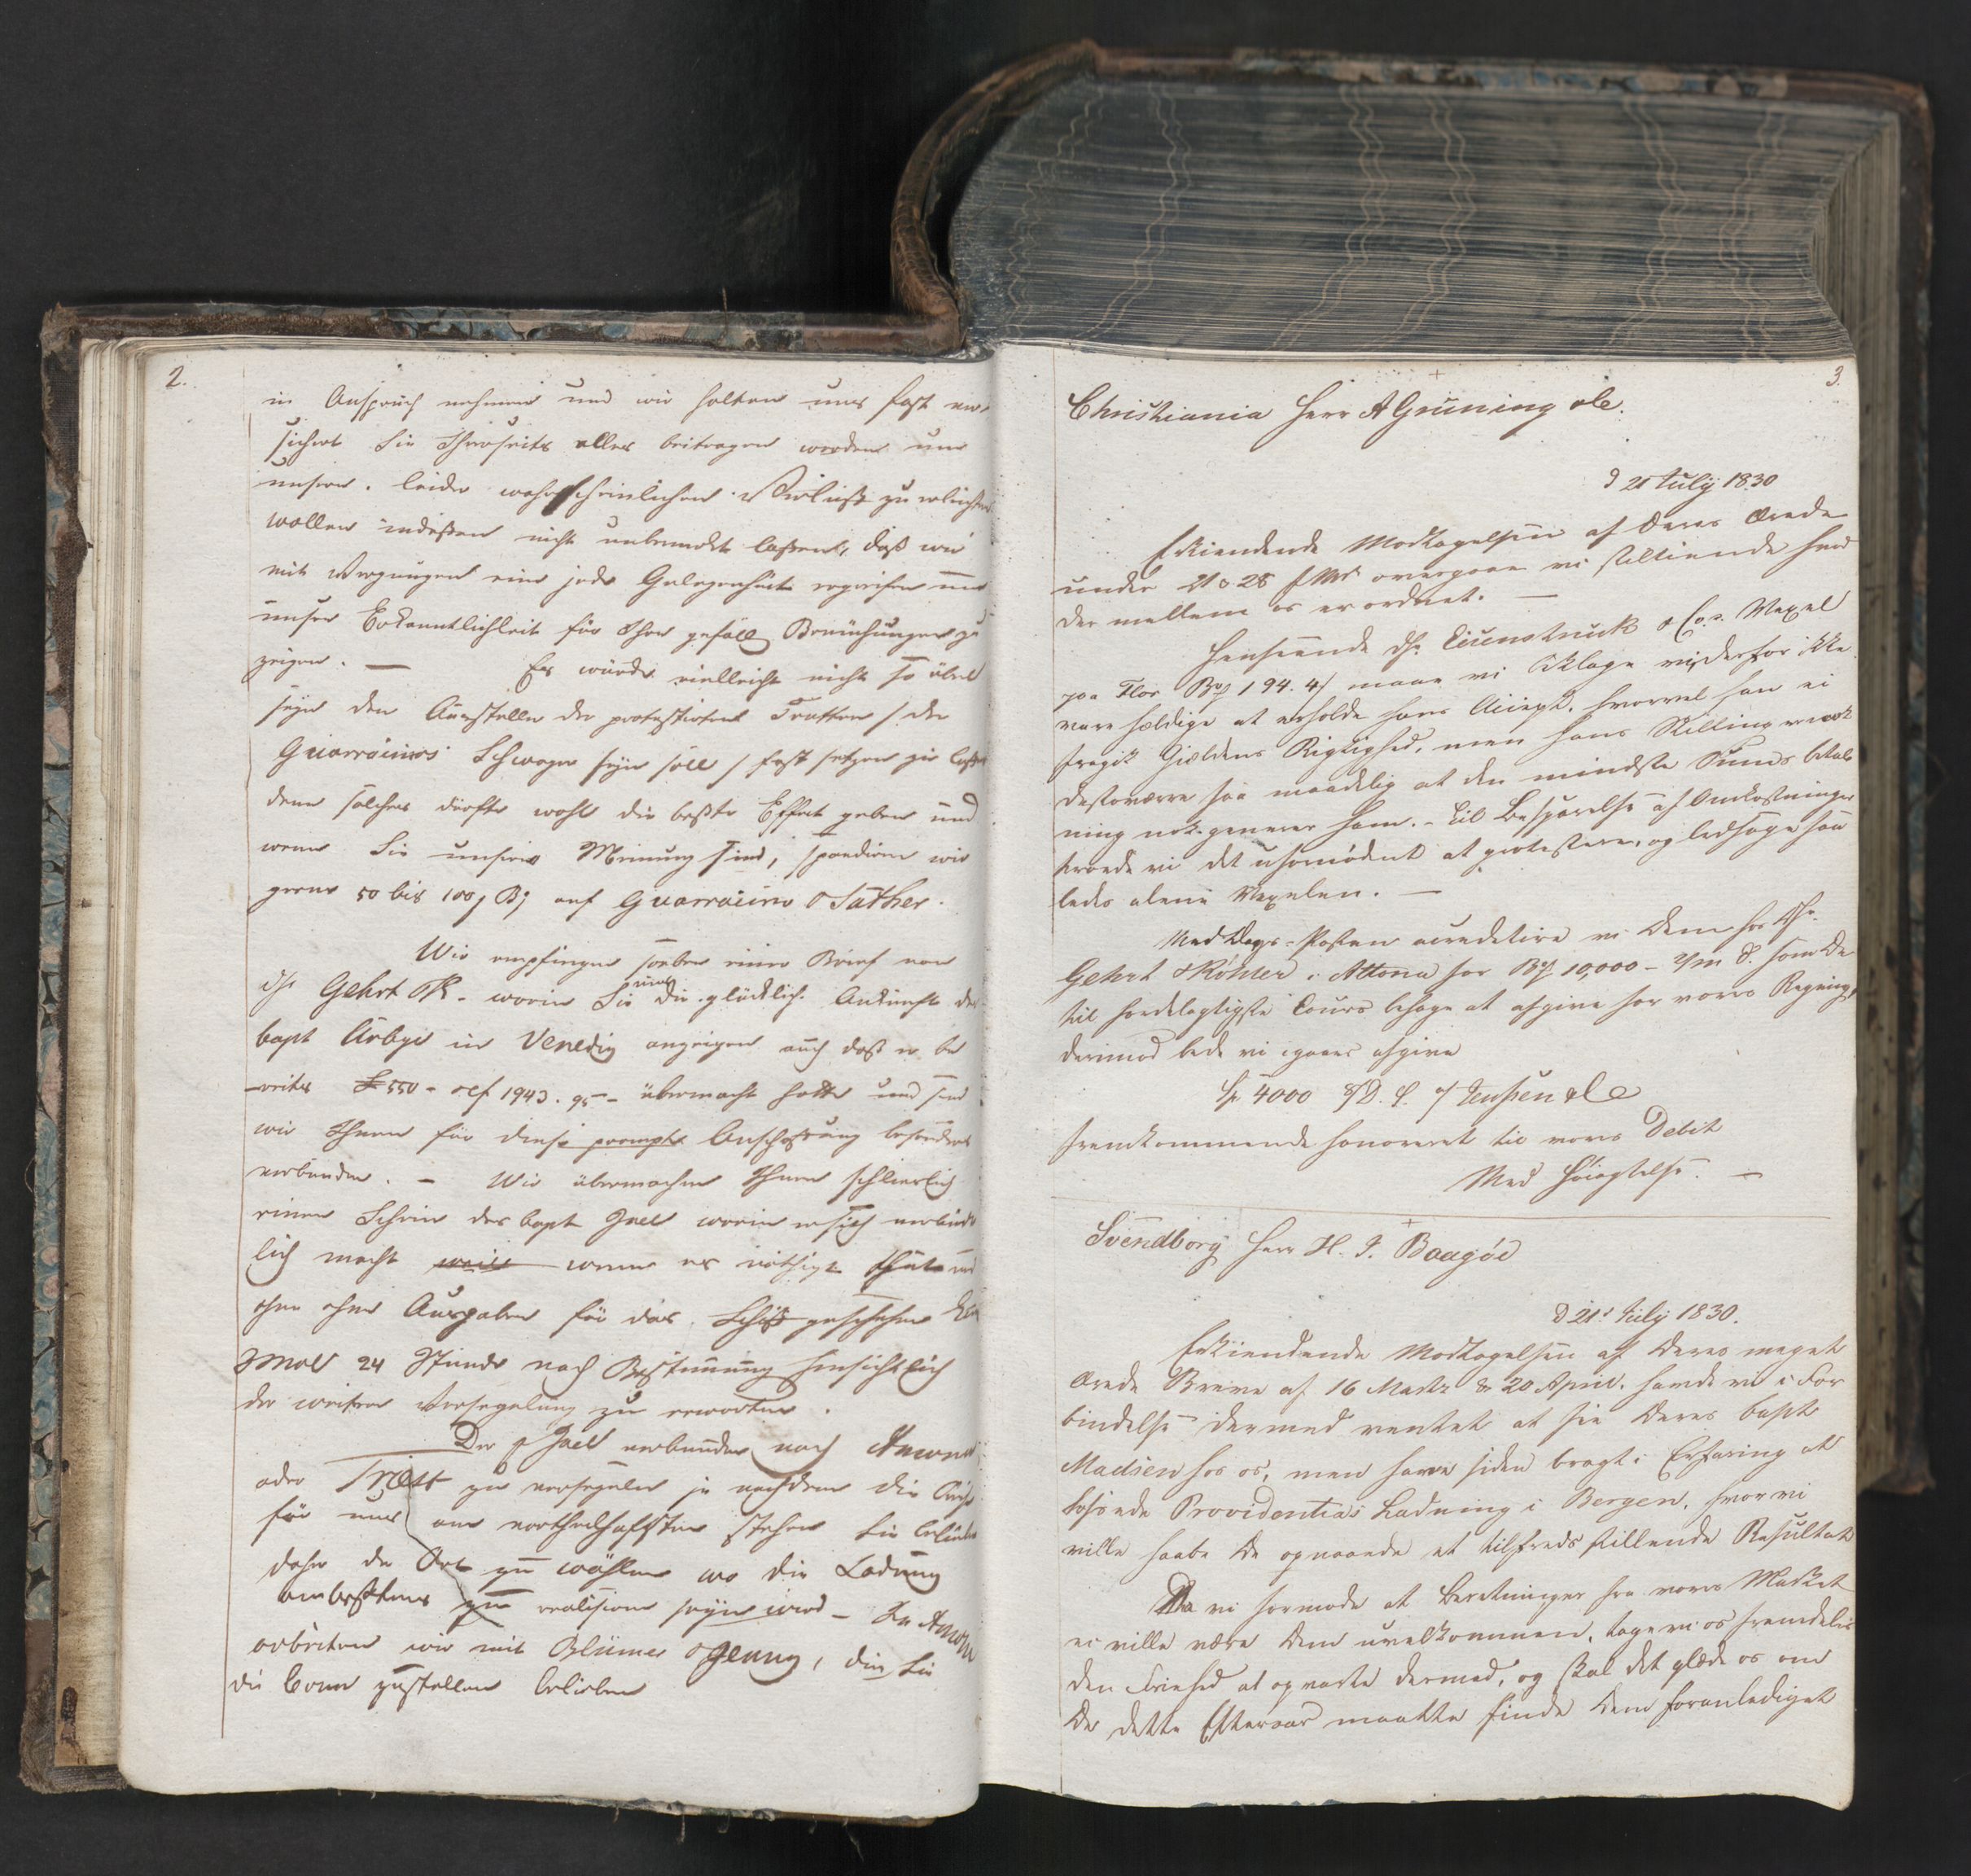 2.
in Anspruch nehmen und wir halten uns fest ver-
sichert Sie Ihrerseits alles beitragen werden um
unsern, leider wahrscheinlichen Verlust zu erleichtern
wollen indessen nicht unbemerkt lassen, daß wir
mit Vergnügen eine jede Gelegenheit ergreifen um
unsere Erkenntlichkeit für Ihre gefäll Bemühungen zu
zeigen. — Es würde vielleicht nicht so übel
seyn den Aussteller der protestirten Tratten / der
Guarracinos Schwager seyn soll / fest setzen zu lassen
denn solches dürfte wohl die beste Effect geben und
wenn Sie unserer Meinung sind, spendiren wir
gerne 50 bis 100 auf Guarracino & Sather.
Wir empfingen soeben einen Brief von
Gehrt & K. worin Sie uns die glücklich. Ankunft des
Capt Aarbye in Venedig anzeigen auch daß er be
-reits £ 550 - 1943. 95 - übermacht hatte und sind
wir Ihnen für diese prompte Anschaffung besonders
verbunden. — Wir übermachen Ihnen schlieslich
einen Schein des Capt Juel worin er sich verbind
lich macht wenn es nöthig thut und
ohne Ausgaben für das Schiff geschehen kan
24 Stunde nach Bestimmung hinsichtlich
der weitern Versegelung zu erwarten.
Der Juel verbunden nach Ancona
oder Triest zu versegeln je nachdem die
für uns am vortheilhaftsten stehen Sie belieben
daher der Ort zu wählen wo die Ladung
am besten zu realisiren seyn wird — In Ancona
arbeiten wir mit Blumer & Jenny, die Sie
die Conn zustellen belieben
3.
Christiania Herr A Gruning &c.
d 21 July 1830
Erkiendende Modtagelsen af Deres Ærede
under 21 & 28 f. M. overgaae vi stiltiende hvad
der mellem os er ordnet. —
Henseende Eisenstruck & Co. s. Vexel
paa Flor 194. 4 maae vi beklage vi derfor ikke
vare heldige at erholde hans Accept, hvorvel han ei
fragik Gjeldens Rigtighed, men hans Stilling er nok
desto værre saa maadelig at den mindste Sums betal
ning nok generer ham. – Til Besparelse af Omkostninger
troede vi det ufornødent at protestere, og ledsage saa
ledes alene Vexelen. —
Med Dags-Posten accreditere vi Dem hos
Gehrt & Köhler i Altona for 10,000 – som De
til fordelagtigste Cours behage at afgive for vores Regning,
derimod bede vi igaaer afgivne
Sp 4000 Jenssen & Co
fremkommende honoreret til vores Debit
Med Høiagtelse. —
Svendborg Herr H. J. Baagöe
d 21 July 1830.
Erkiendende Modtagelsen af Deres meget
ærede Breve af 16 Marts & 20 April, havde vi i For
bindelse dermed ventet at see Deres Capt
Madsen hos os, men have siden bragt i Erfaring at
losede Providentias Ladning i Bergen, hvor vi
ville haabe De opnaaede et tilfredsstillende Resultat
Da vi formode at Beretninger fra vores Marked
ei ville være Dem uvelkommen, tage vi os fremdeles
den Friehed at opvarte dermed, og skal det glæde os om
De dette Efteraar maatte finde Dem foranlediget